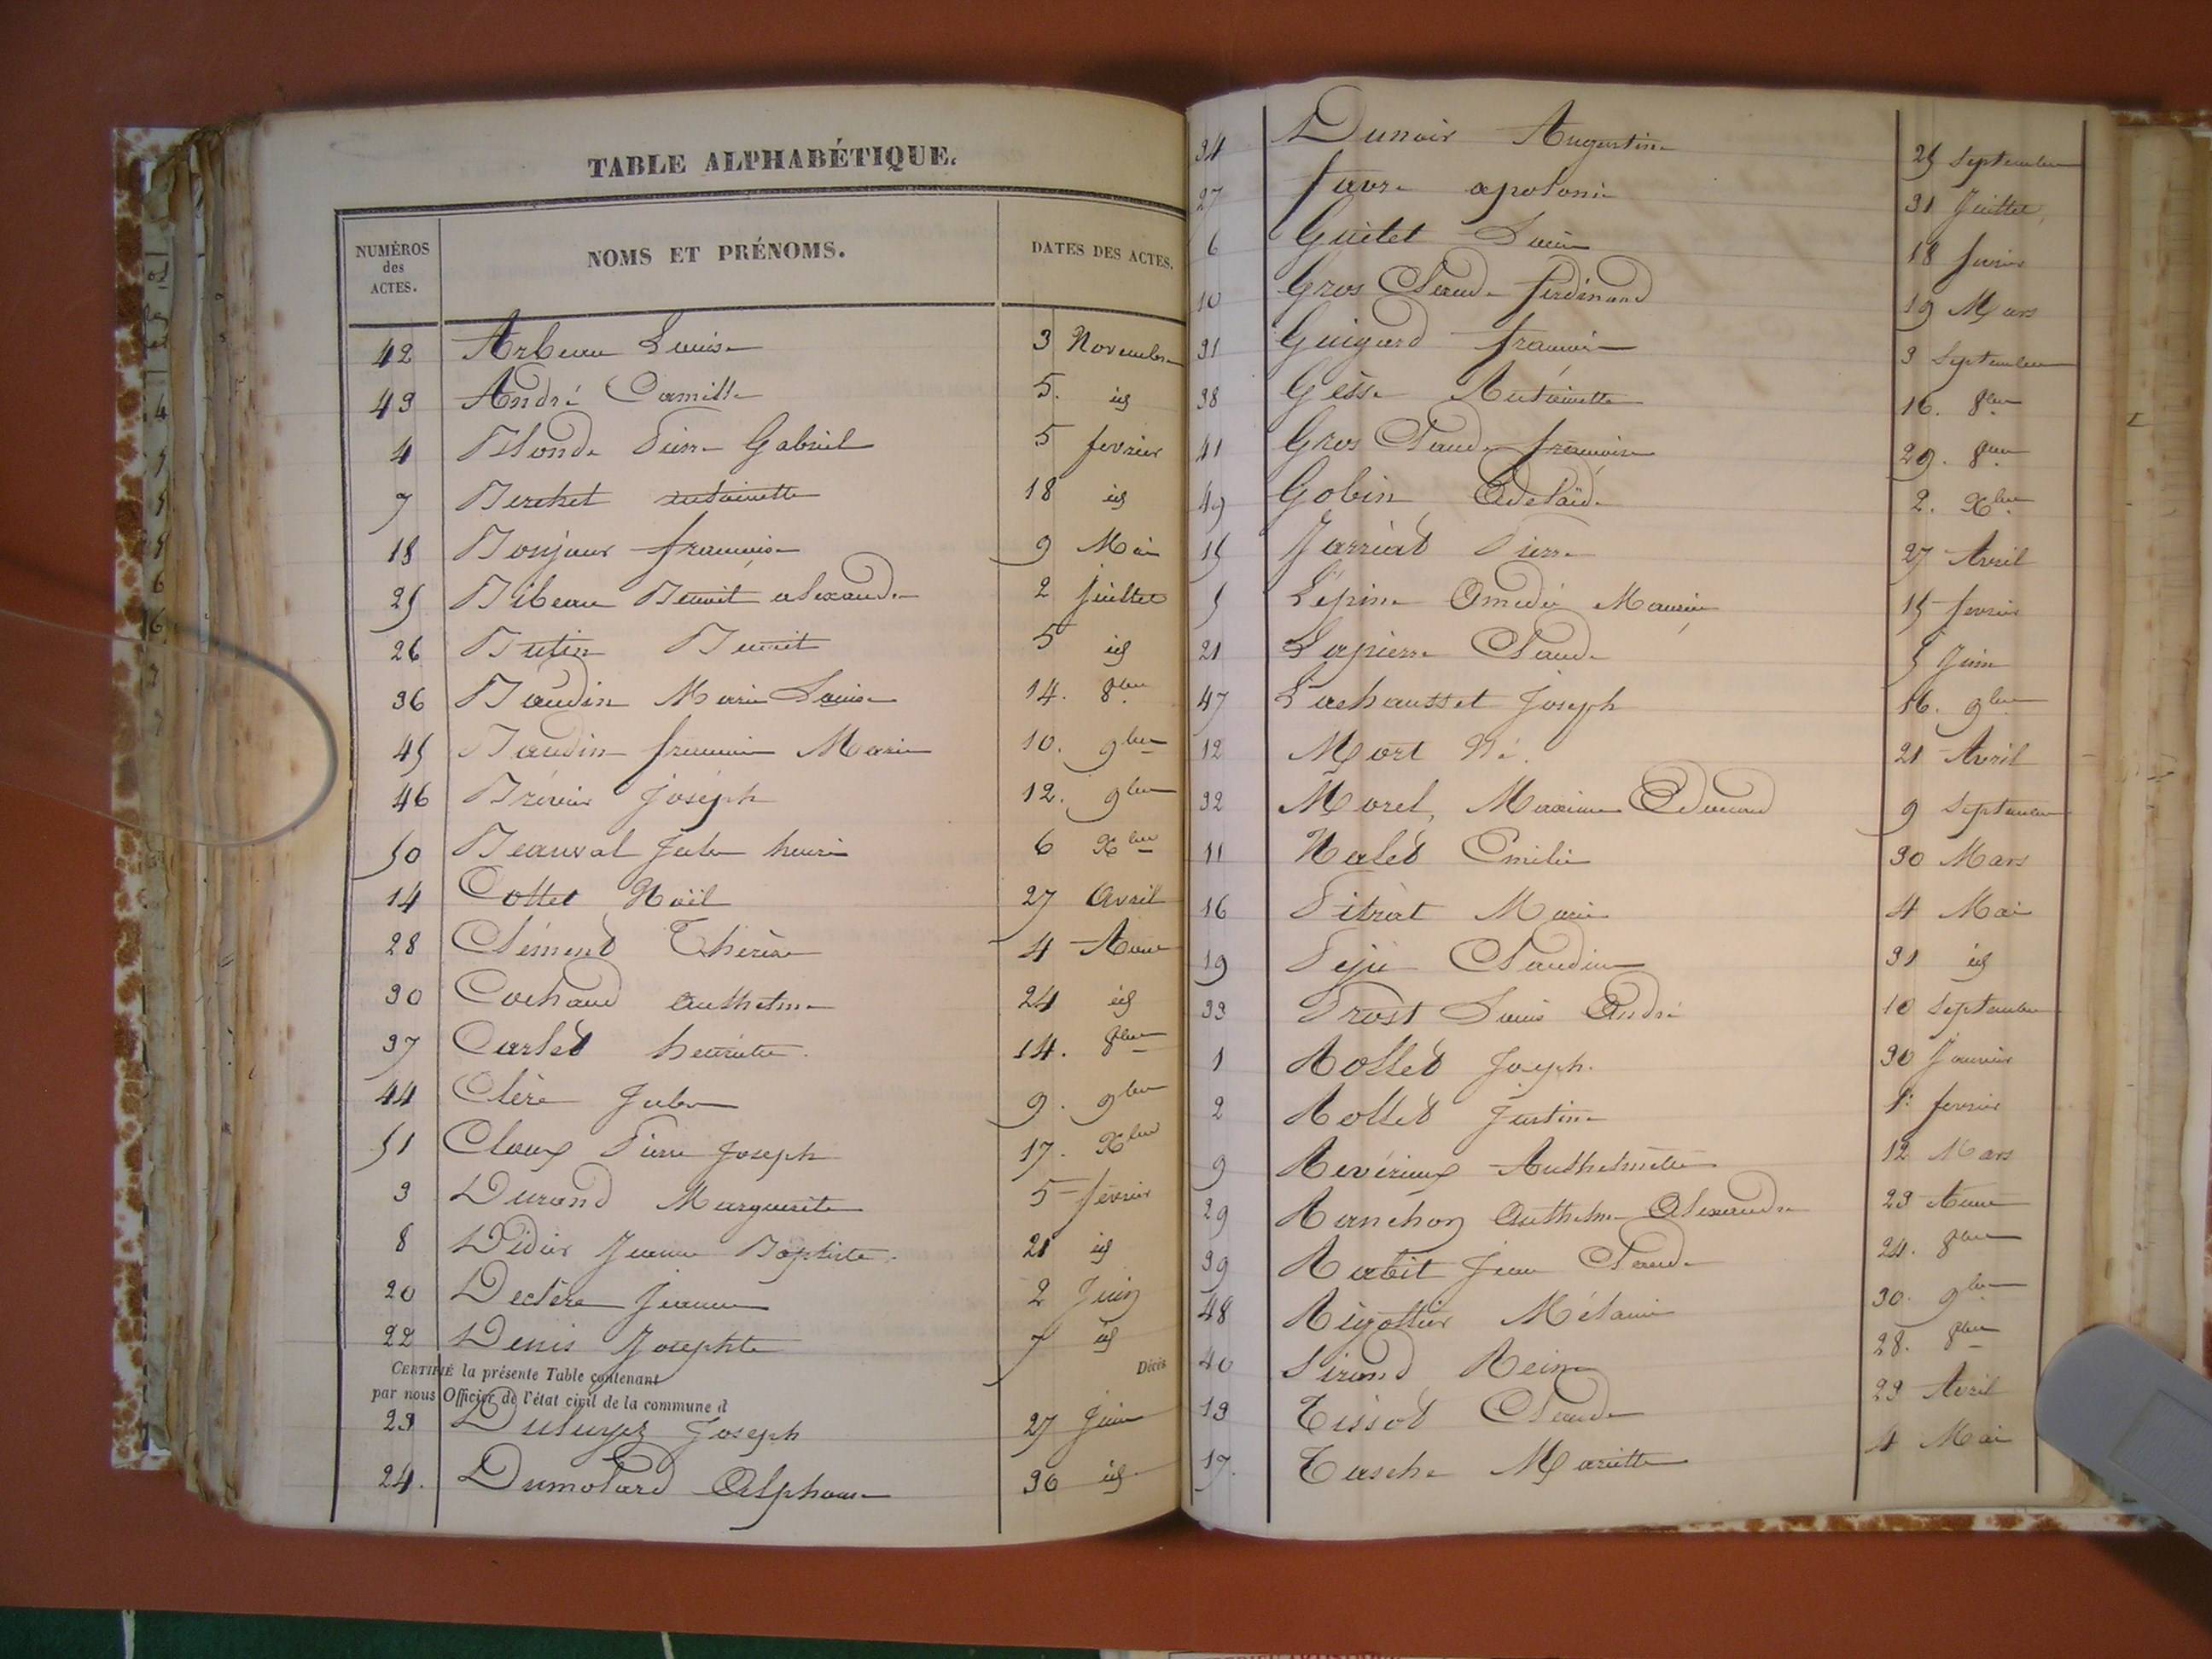 TABLE ALPHABÉTIQUE.
NUMÉROS des ACTES. NOMS ET PRÉNOMS. DATES DES ACTES.
42 Arbeau Louise 3 Novembre
43 André Camille 5. id
4 Blonde Pierre Gabriel 5 fevrier
7 Berchet antoinette 18 id
18 Bonjour françoise 9 Mai
25 Bibeau Benoit alexandre 2 juillet
26 Butin Benoit 5 id
36 Baudin Marie Louise 14. 8bre
45 Baudin Marie 10. 9bre
46 Joseph 12. 9bre
50 Beauval Jules henri 6 Xbre
14 Cottet Noël 27 Avril
28 Clémend Thérèse 4 Aout
30 Cochaud anthelme 24 id
37 Carled henriette. 14. 8bre
44 Clère Jules 9. 9bre
51 Claux Pierre Joseph 17. Xbre
3 Durand Marguerite 5 fevrier
8 Didier Jeanne Baptiste. 21 id
20 Declère Jeanne 2 Juin
22 Denis Josephte 7 id
CERTIFIÉ la présente Table contenant Décès
par nous Officier de l'état civil de la commune d
23 Joseph 27 Juin
24. Dumolard Alphonse 30 id
34 Dunoir Augustine 25 Septembre
27 favre apolonie 31 Juillet
6 Guilet 18 fevrier
10 Gros Claude ferdinand 19 Mars
31 Guigard 3 Septembre
38 Gesse Antoinette 16. 8bre
41 Gros Claude françoise 29. 8bre
49 Gobin Adelaïde 2. Xbre
15 Jarriad Pierre 27 Avril
5 Lépine Amedée Maurice 15 fevrier
21 Lapierre Claude 5 Juin
47 Lachausset Joseph 16. 9bre
12 Mort Né. 21 Avril
32 Morel, Edouard 9 Septembre
11 Naled Emilie 30 Mars
16 Pitrat Marie 4 Mai
19 Claudine 31 id
33 Prost Louis André 10 Septembre
1 Rolled Joseph. 30 Janvier
2 Rolled Justine 1er fevrier
9 Revérieux Anthelmette 12 Mars
29 Ranchon Anthelme Alexandre 23 Aout
39 Rabit Jean Claude 24. 8bre
48 Rigottier Mélanie 30. 9bre
40 Sirand Reine 28. 8bre
13 Tissod Claude 23 Avril
17. Tasche Mariette 4 Mai